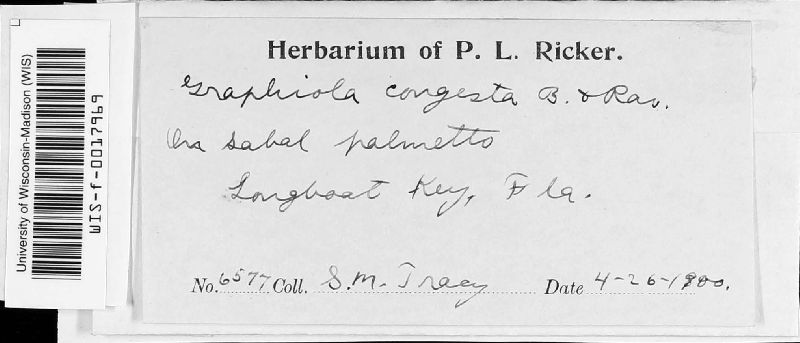 Herbarium of P. L. Ricker.
Graphiola congesta B. & Rav.
On sabal palmetto
Longboat Key, Fla.
No. 6577 Coll. S. M. Tracy Date 4-26-1900.
University of Wisconsin-Madison (WIS)
WIS-f-0017969